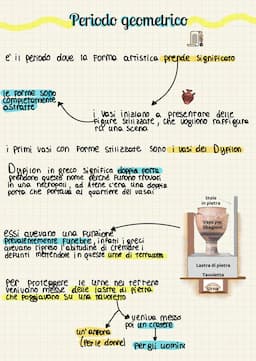 Periodo geometrico
e' il periodo dove la forma artistica prende significato
le forme sono
completamente
astratte
i vasi iniziano a presentare delle
figure stilizzate, che vogliono raffigura
re una scena
i primi vasi con forme stilizzate sono i vasi del Dypilon
Dypilon in greco significa doppia porta
prendono questo nome perché furono trovati
in una necropoli, ad Atene c'era una doppia
porta che portava al quartiere dei vasai
essi avevano una funzione
prevalentemente funebre, infatti i greci
avevano ripreso l'abitudine di cremare i
defunti mettendoli in queste urne di terracotta
Stele
in pietra
Lastra di pietra
Tavoletta
Per proteggere le urne nel terreno
venivano messe delle lastre di pietra
che poggiavano su una tavoletta
veniva messo
poi un cratere
un'anfora
(per le donne)
per gli uomini